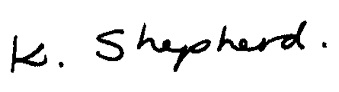 K. Shepherd.